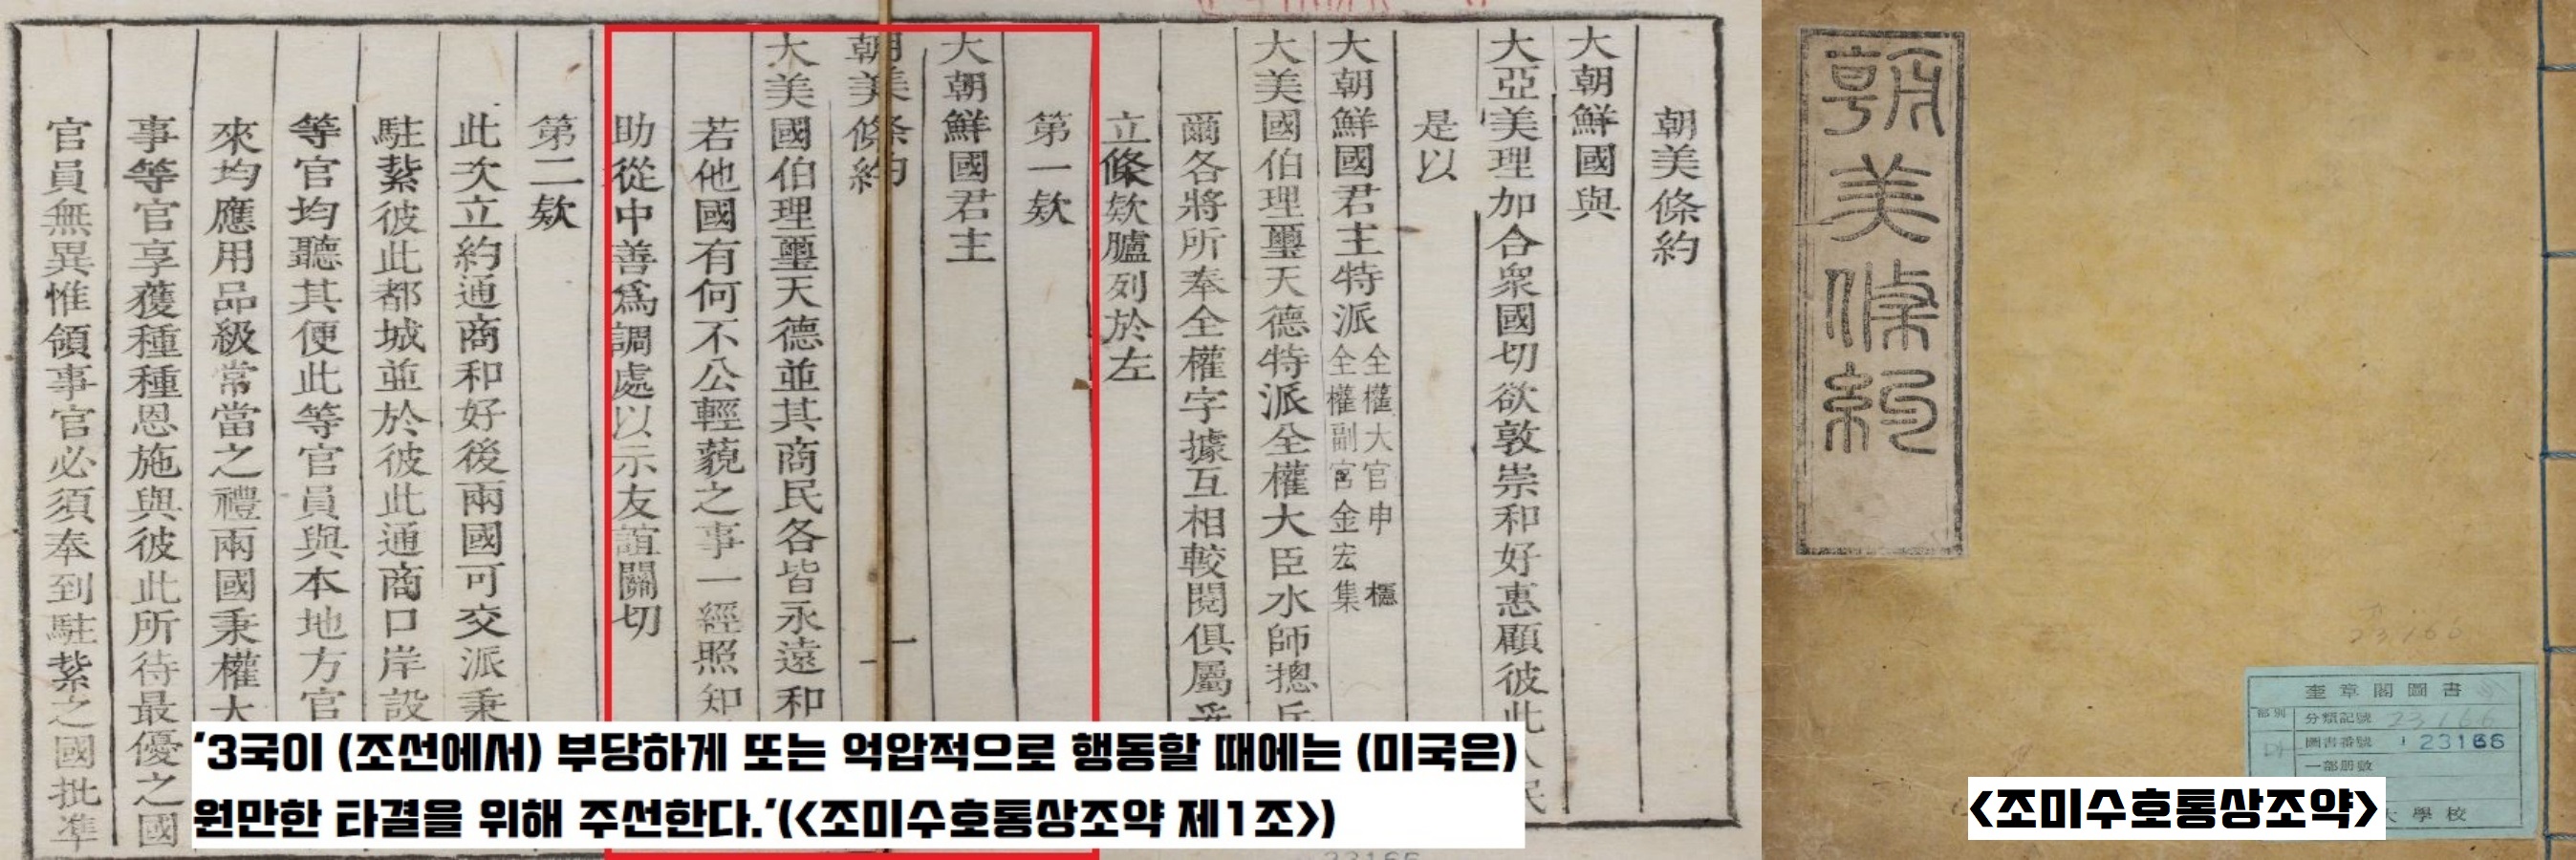 朝美條約
大朝鮮國與
大亞美理加合衆國切欲敦崇和好惠顧彼此人民
是以
大朝鮮國君主特派
全權大官申櫶
全權副官金宏集
大美國伯理璽天德特派全權大臣水師摠兵
爾各將所奉全權字據互相較閱俱屬妥
立條欵臚列於左
第一欵
大朝鮮國君主
朝美條約
一
大美國伯理璽天德並其商民各皆永遠和
若他國有何不公輕藐之事一經照知
助從中善爲調處以示友誼關切
第二欵
此次立約通商和好後兩國可交派秉
駐紮彼此都城並於彼此通商口岸設
等官均聽其便此等官員與本地方官
來均應用品級常當之禮兩國秉權大
事等官享獲種種恩施與彼此所待最優之國
官員無異惟領事官必須奉到駐紮之國批準
'3국이 (조선에서) 부당하게 또는 억압적으로 행동할 때에는 (미국은)
원만한 타결을 위해 주선한다.'(<조미수호통상조약 제1조>)
23166
朝美條約
23166
奎章閣圖書
部別
分類記號 23166
圖書番號 23166
一部冊數
大學校
<조미수호통상조약>